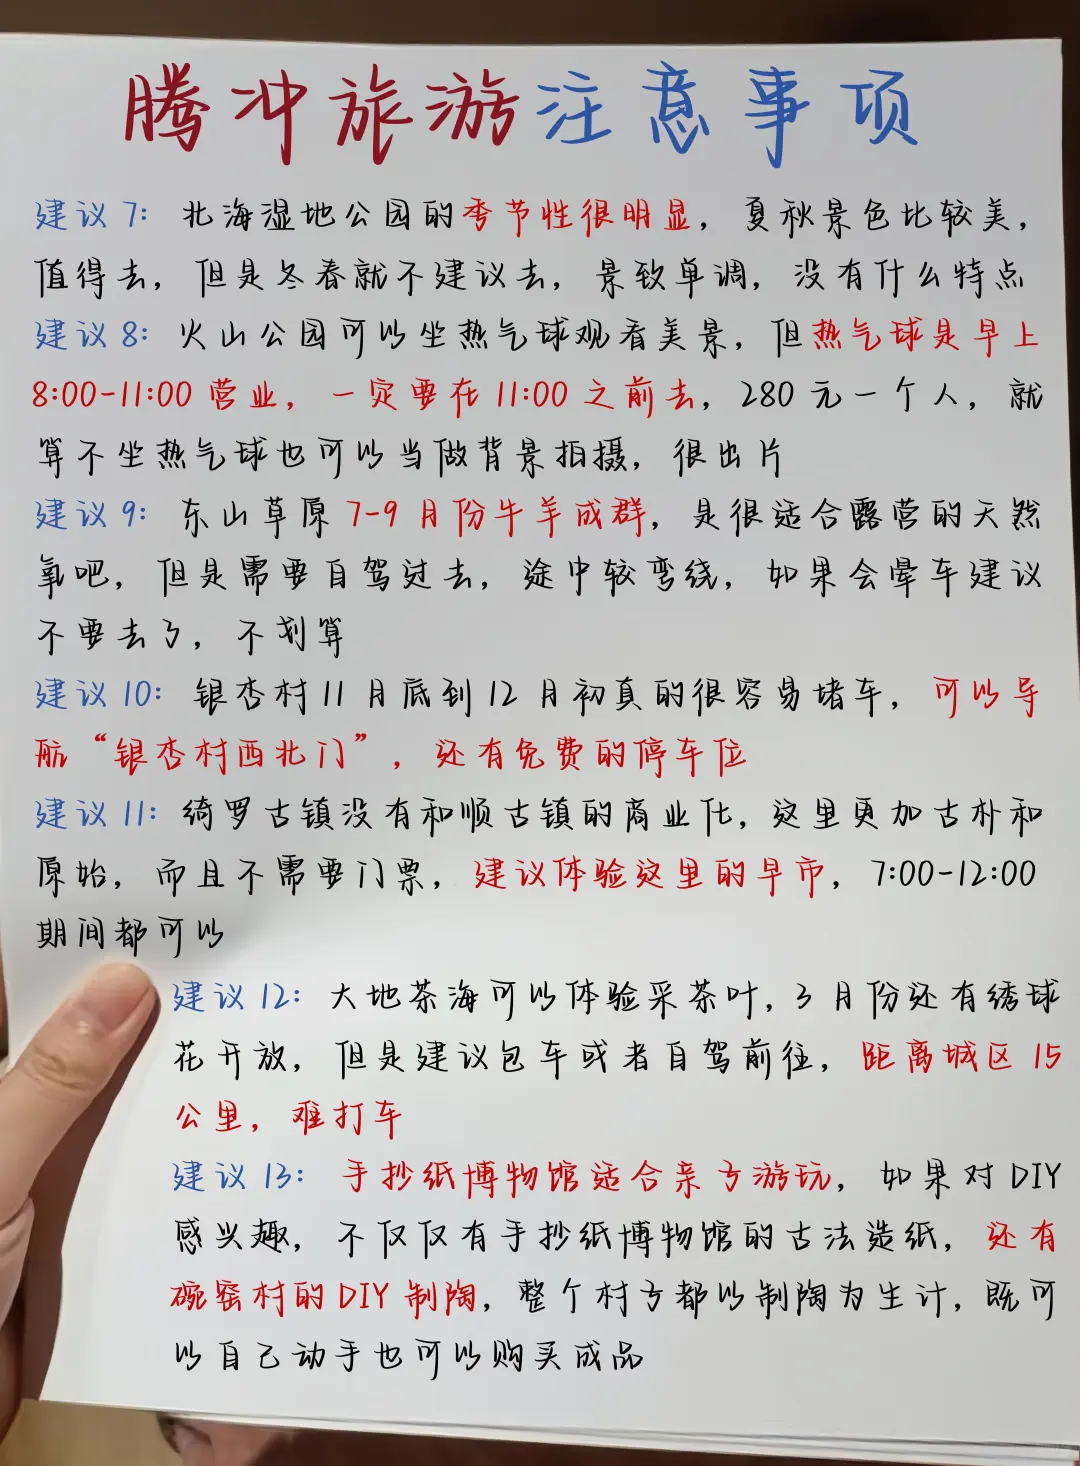 腾冲旅游注意事项
建议7：北海湿地公园的季节性很明显，夏秋景色比较美，
值得去，但是冬春就不建议去，景致单调，没有什么特点
建议8：火山公园可以坐热气球观看美景，但热气球是早上
8:00-11:00营业，一定要在11:00之前去，280元一个人，就
算不坐热气球也可以当做背景拍摄，很出片
建议9：东山草原7-9月份牛羊成群，是很适合露营的天然
氧吧，但是需要自驾过去，途中较弯绕，如果会晕车建议
不要去了，不划算
建议10：银杏村11月底到12月初真的很容易堵车，可以导
航“银杏村西北门”，还有免费的停车位
建议11：绮罗古镇没有和顺古镇的商业化，这里更加古朴和
原始，而且不需要门票，建议体验这里的早市，7:00-12:00
期间都可以
建议12：大地茶海可以体验采茶叶，3月份还有绣球
花开放，但是建议包车或者自驾前往，距离城区15
公里，难打车
建议13：手抄纸博物馆适合亲子游玩，如果对DIY
感兴趣，不仅仅有手抄纸博物馆的古法造纸，还有
碗窑村的DIY制陶，整个村子都以制陶为生计，既可
以自己动手也可以购买成品